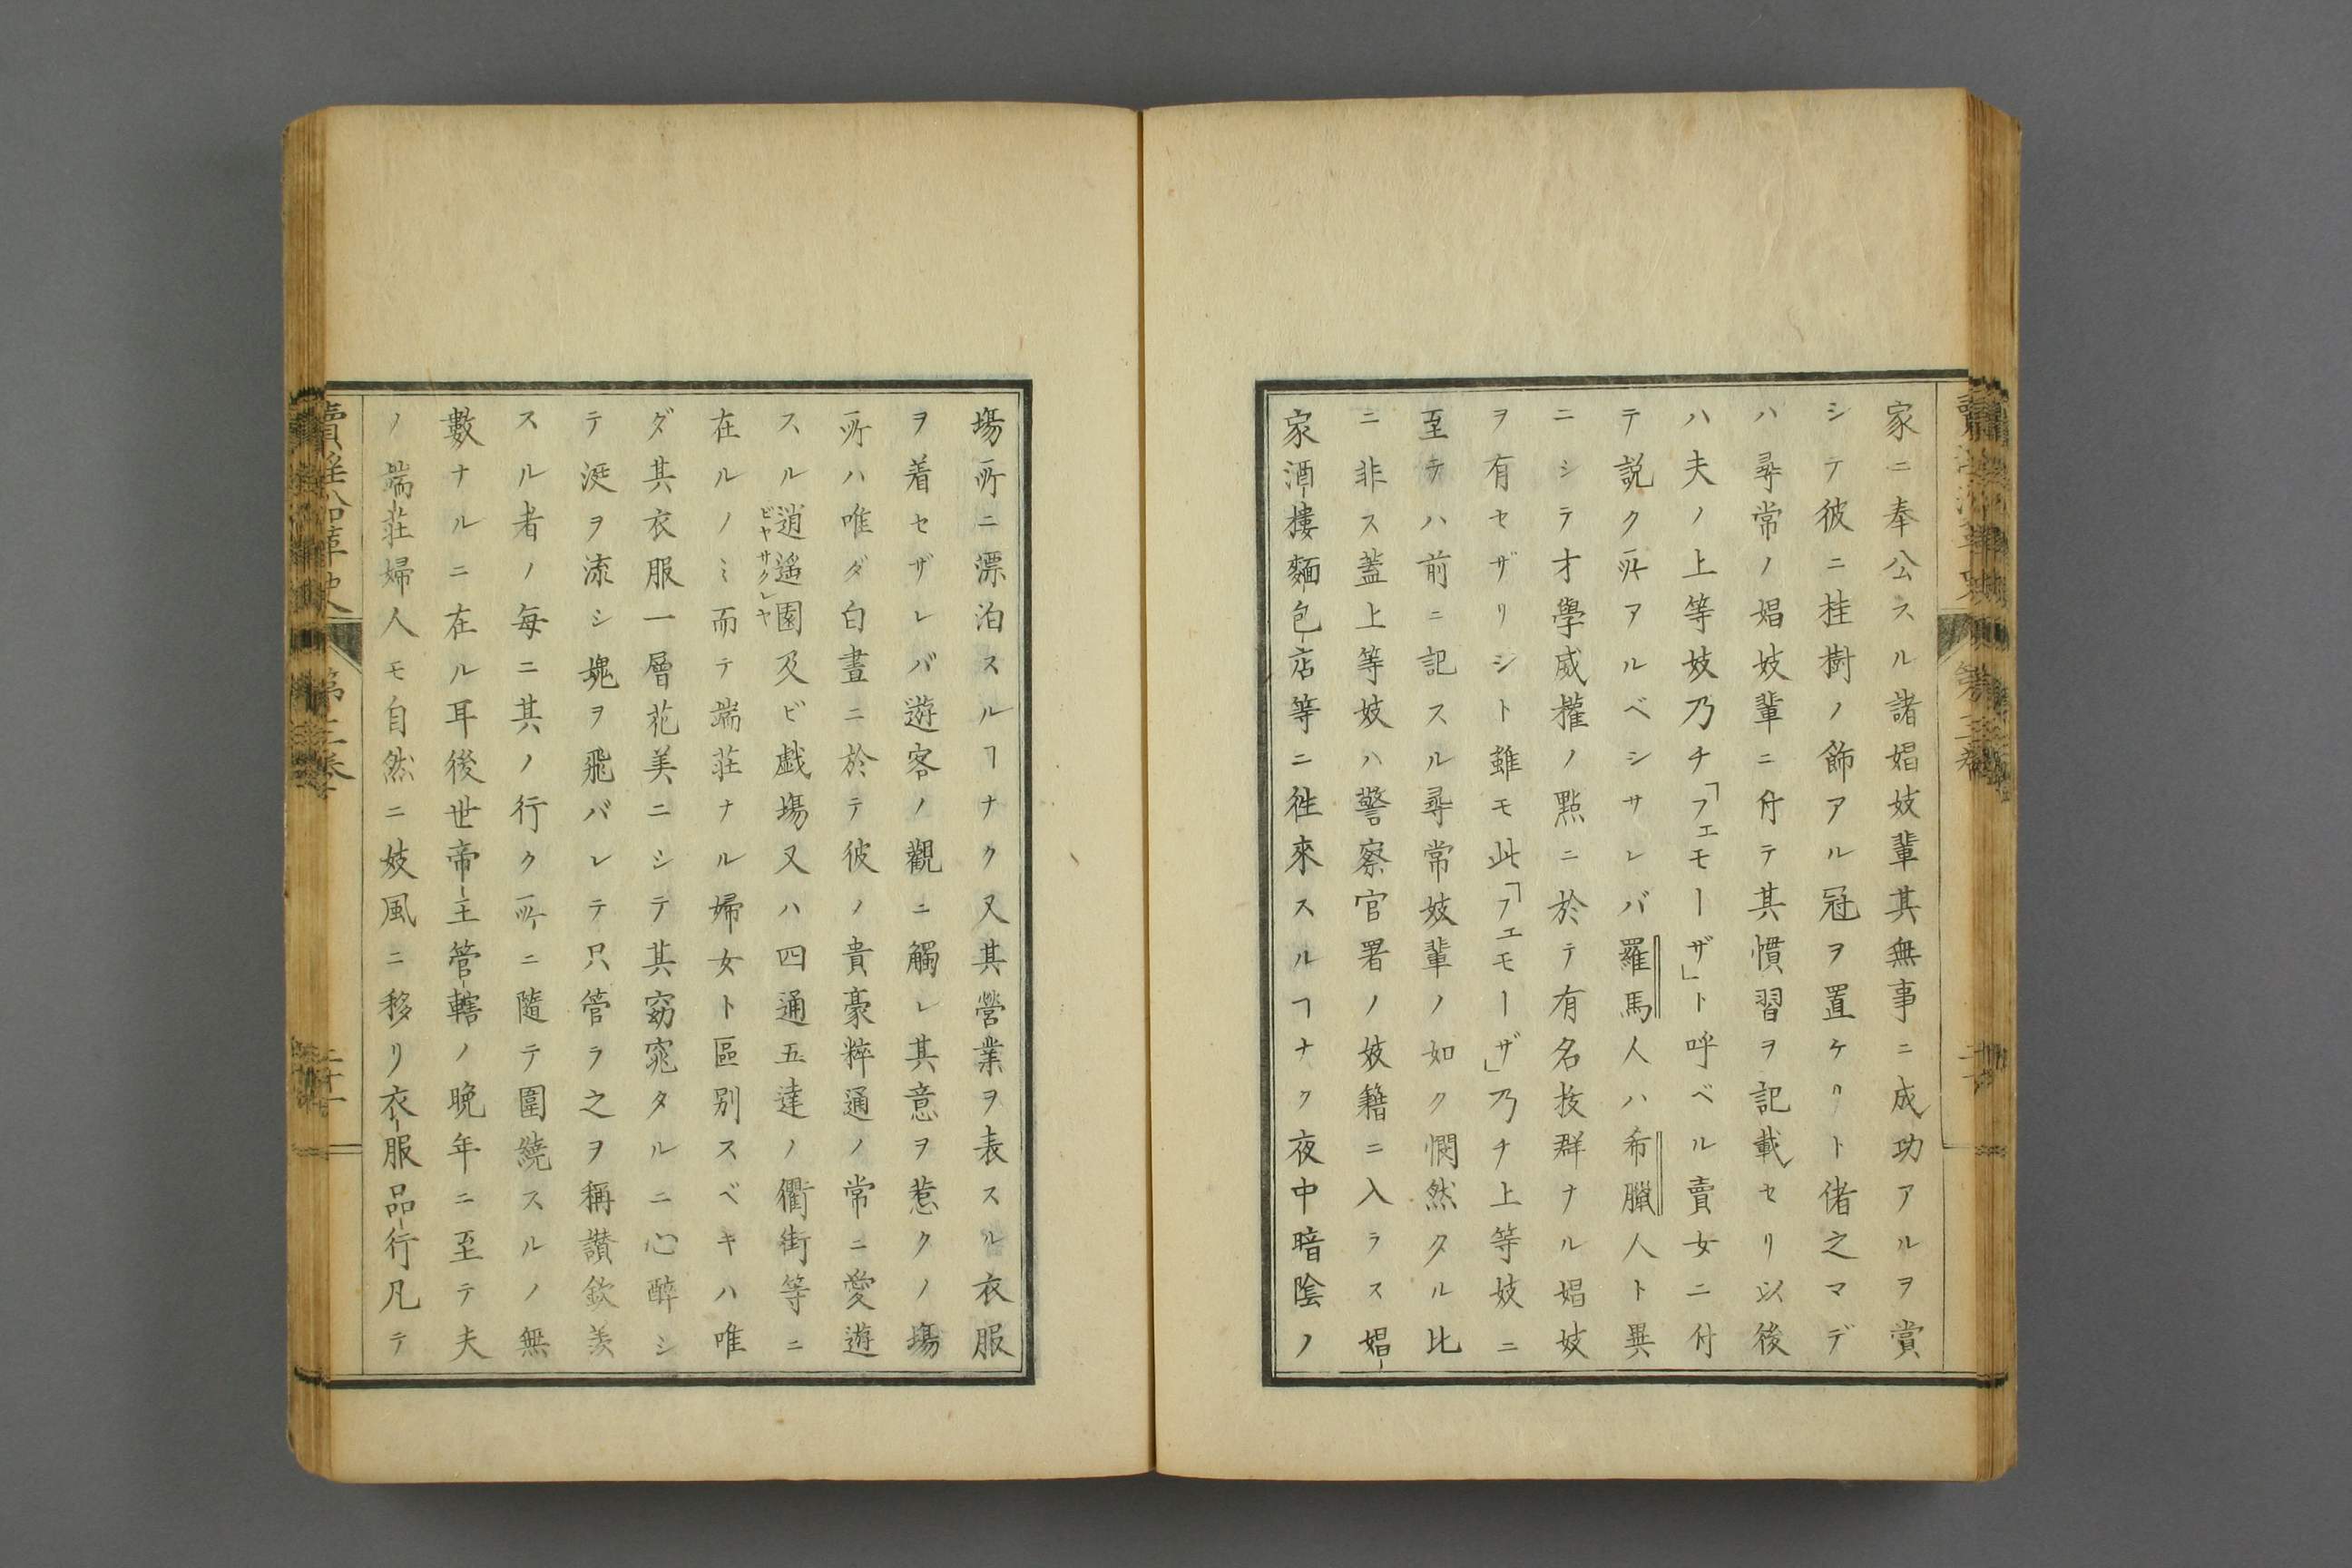 家ニ奉公スル諸娼妓輩其無事ニ成功アルヲ賞
シテ彼ニ桂樹ノ飾アル冠ヲ置ケリト偖之マデ
ハ尋常ノ娼妓輩ニ付テ其慣習ヲ記載セリ以後
ハ夫ノ上等妓乃チ「フエモーザ」ト呼ベル賣女ニ付
テ説ク所アルベシサレバ羅馬人ハ希臘人ト異
ニシテ才學威權ノ點ニ於テ有名抜群ナル娼妓
ヲ有セザリシト雖モ此「フエモーザ」乃チ上等妓ニ
至テハ前ニ記スル尋常妓輩ノ如ク憫然タル比
ニ非ス蓋上等妓ハ警察官署ノ妓籍ニ入ラス娼
家酒樓麵包店等ニ徃來スルヿナク夜中暗陰ノ
場所ニ漂泊スルヿナク又其營業ヲ表スル衣服
ヲ着セザレバ遊客ノ觀ニ觸レ其意ヲ惹クノ場
所ハ唯ダ白晝ニ於テ彼ノ貴豪粹通ノ常ニ愛遊
スル逍遙園及ビ戯場又ハ四通五達ノ衢街等ニ
ビヤサクレヤ
在ルノミ而テ端荘ナル婦女ト區別スベキハ唯
ダ其衣服一層花美ニシテ其窈窕タルニ心醉シ
テ涎ヲ流シ魂ヲ飛バレテ只管ラ之ヲ稱讃欽羨
スル者ノ毎ニ其ノ行ク所ニ隨テ圍繞スルノ無
數ナルニ在ル耳後世帝王管轄ノ晩年ニ至テ夫
ノ端荘婦人モ自然ニ妓風ニ移リ衣服品行凡テ
第三巻
二十一